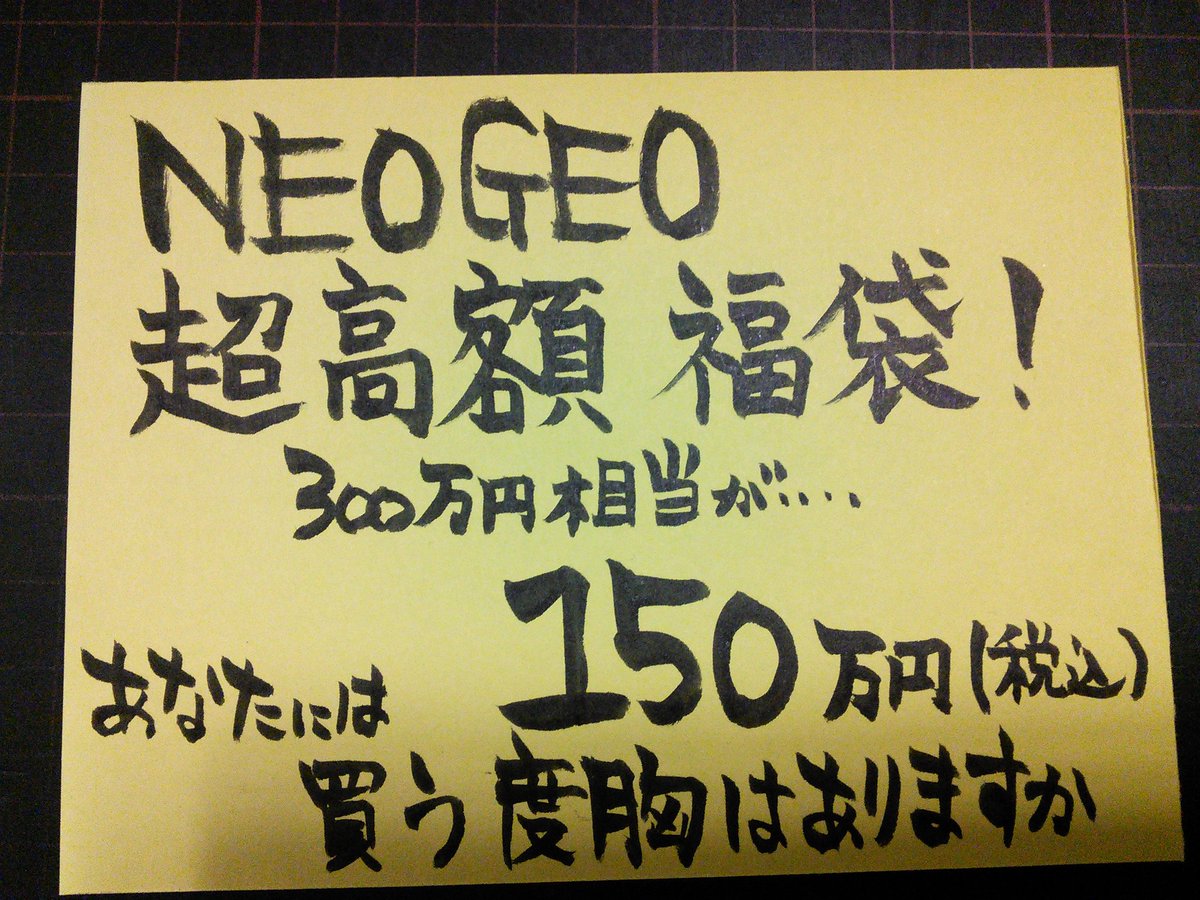 NEOGEO
超高額 福袋!
300万円相当が....
150万円(税込)
あなたには
買う度胸はありますか